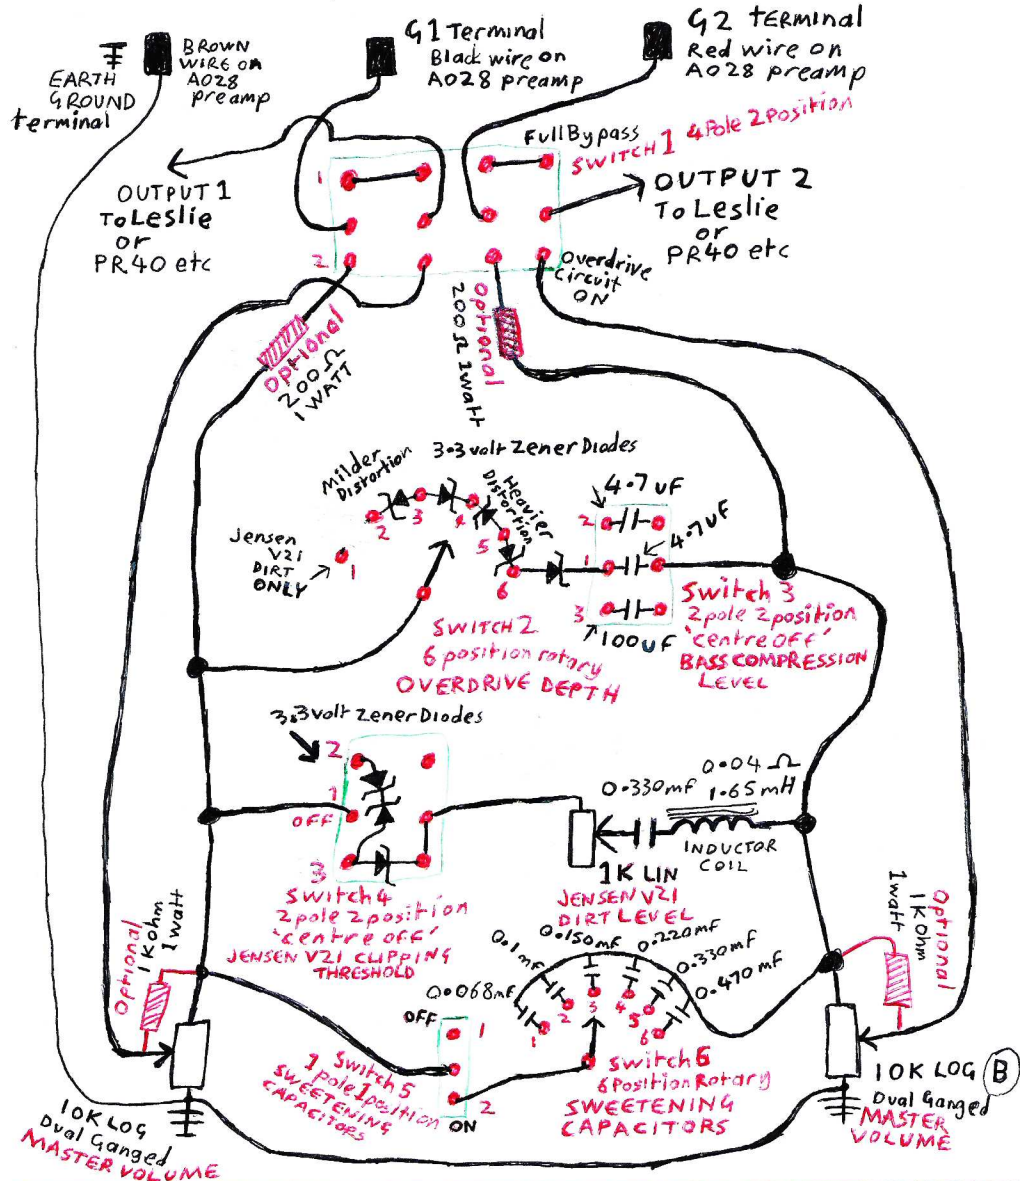 EARTH
GROUND
terminal
BROWN
WIRE ON
AO28
preamp
G1 Terminal
Black wire on
AO28 preamp
G2 TERMINAL
Red wire on
AO28 preamp
Full Bypass
SWITCH 1 4 Pole 2 Position
1
2
OUTPUT 1
To Leslie
or
PR40 etc
OUTPUT 2
To Leslie
or
PR40 etc
Overdrive
Circuit
ON
Optional
200 Ω
1 WATT
Optional
200 Ω 1 watt
3.3 volt Zener Diodes
Milder
Distortion
Heavier
Distortion
Jensen
V21
DIRT
ONLY
1
2
3
4
5
6
4.7 uF
4.7 uF
2
1
3
100 uF
SWITCH 2
6 position rotary
OVERDRIVE DEPTH
Switch 3
2 pole 2 position
'centre off'
BASS COMPRESSION
LEVEL
3.3 volt Zener Diodes
2
1
OFF
3
Switch 4
2 pole 2 position
'centre off'
JENSEN V21 CLIPPING
THRESHOLD
0.330 mf
0.04 Ω
1.65 mH
INDUCTOR
COIL
1K LIN
JENSEN V21
DIRT LEVEL
Optional
1K ohm
1 watt
Optional
1K ohm
1 watt
0.068 mf
0.1 mf
0.150 mf
0.220 mf
0.330 mf
0.470 mf
1
2
3
4
5
6
OFF
1
2
ON
Switch 5
1 pole 1 position
SWEETENING
CAPACITORS
Switch 6
6 Position Rotary
SWEETENING
CAPACITORS
10K LOG
Dual Ganged
MASTER VOLUME
10K LOG B
Dual Ganged
MASTER
VOLUME